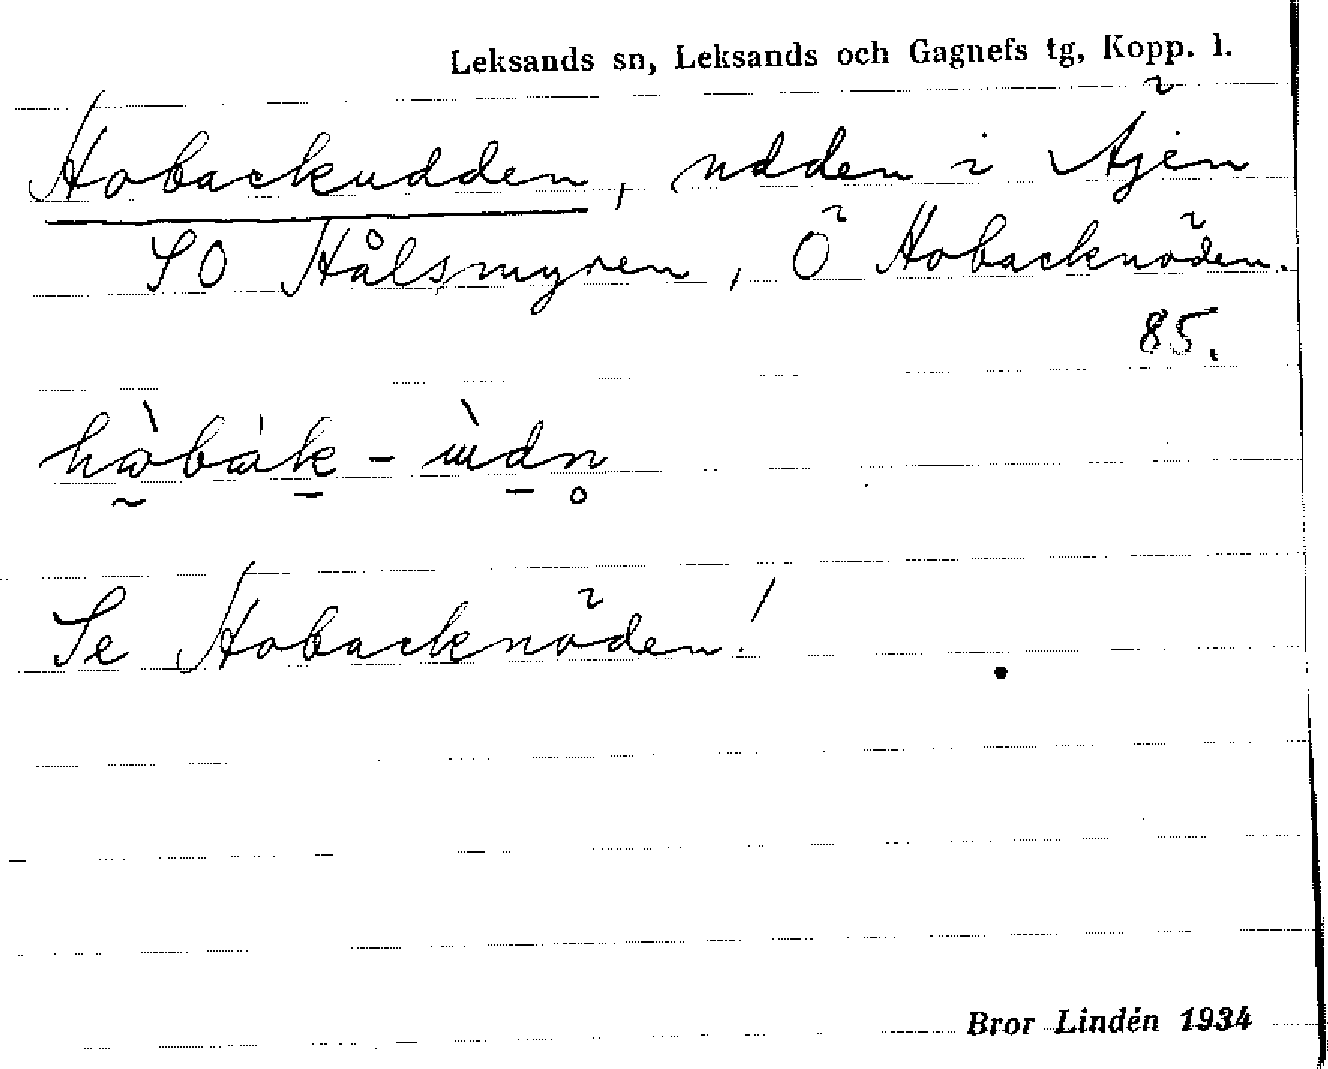 Leksands sn, Leksands och Gagnefs tg, Kopp. l.
Hobackudden, udden i Äjen
SO Hålsmyren, Ö Hobacknöden.
85.
Se Hobacknöden!
Bror Lindén 1934